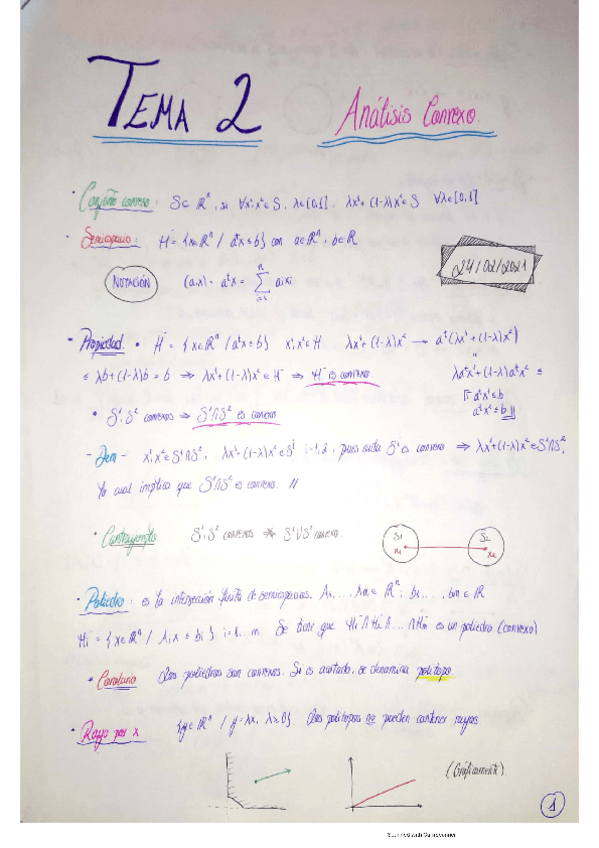 TEMA 2 Análisis Convexo.
· Conjunto convexo: S⊂ ℝⁿ, si ∀x¹,x²∈S, λ∈[0,1], λx¹+(1-λ)x²∈S ∀λ∈[0,1]
· Semiespacio: H⁻={x∈ℝⁿ / aᵗx≤b} con a∈ℝⁿ, b∈ℝ
24/02/2021
NOTACIÓN (a,x) = aᵗx = Σ aᵢxᵢ
· Propiedad • H⁻={x∈ℝⁿ / aᵗx≤b} x¹,x²∈H λx¹+(1-λ)x² → aᵗ(λx¹+(1-λ)x²)
≤ λb+(1-λ)b = b ⇒ λx¹+(1-λ)x²∈H⁻ ⇒ H⁻ es convexo λaᵗx¹+(1-λ)aᵗx² ≤
aᵗx¹≤b
aᵗx²≤b
• S¹,S² convexos ⇒ S¹∩S² es convexo
- Dem - x¹,x²∈S¹∩S², λx¹+(1-λ)x²∈Sⁱ i=1,2, pues cada Sⁱ es convexo ⇒ λx¹+(1-λ)x²∈S¹∩S²,
lo cual implica que S¹∩S² es convexo. //
• Contraejemplo S¹,S² convexos ⇏ S¹∪S² convexo.
S₁ S₂
x₁ x₂
· Poliedro: es la intersección finita de semiespacios. A₁,...,Aₘ∈ℝⁿ; b₁,...,bₘ∈ℝ
Hᵢ⁻={x∈ℝⁿ / Aᵢx≤bᵢ} i=1,...m Se tiene que H₁⁻∩H₂⁻∩...∩Hₘ⁻ es un poliedro (convexo)
• Corolario Los poliedros son convexos. Si es acotado, se denomina politopo.
· Rayo por x {y∈ℝⁿ / y=λx, λ≥0}. Los politopos no pueden contener rayos
(Gráficamente)
1